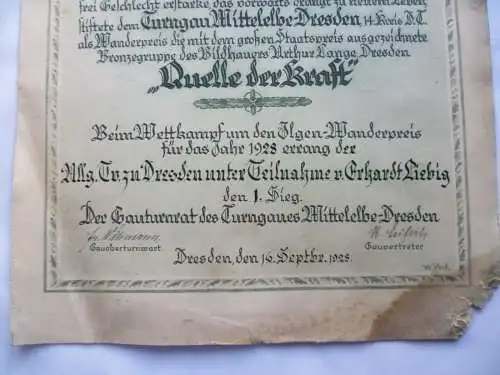 frei Geschlecht erstarke, das vorwärts drängt zu neuerem Leben,
stiftete dem Turngau Mittelelbe Dresden, 14. Kreis D.T.
als Wanderpreis die mit dem großen Staatspreis ausgezeichnete
Bronzegruppe des Bildhauers Arthur Lange, Dresden
„Quelle der Kraft"
Beim Wettkampf um den Ilgen-Wanderpreis
für das Jahr 1928 errang der
Allg. Tv. zu Dresden unter Teilnahme v. Erhardt Liebig
den 1. Sieg.
Der Gauturnrat des Turngaues Mittelelbe-Dresden
Gauoberturnwart Gauvertreter
Dresden, den 16. Septbr. 1928.